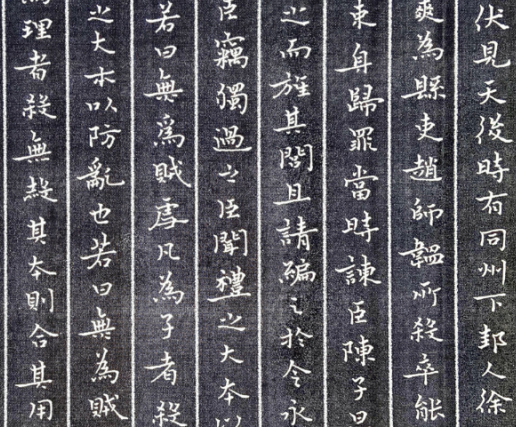 伏見天後時有同州下邽人徐
爽為縣吏趙師韞所殺卒能
束身歸罪當時諫臣陳子
之而旌其閭且請編之於令永
臣竊獨過之臣聞禮之大本以
若曰無爲賊虐凡為子者殺
之大本以防亂也若曰無為賊
為理者殺無赦其本則合其用